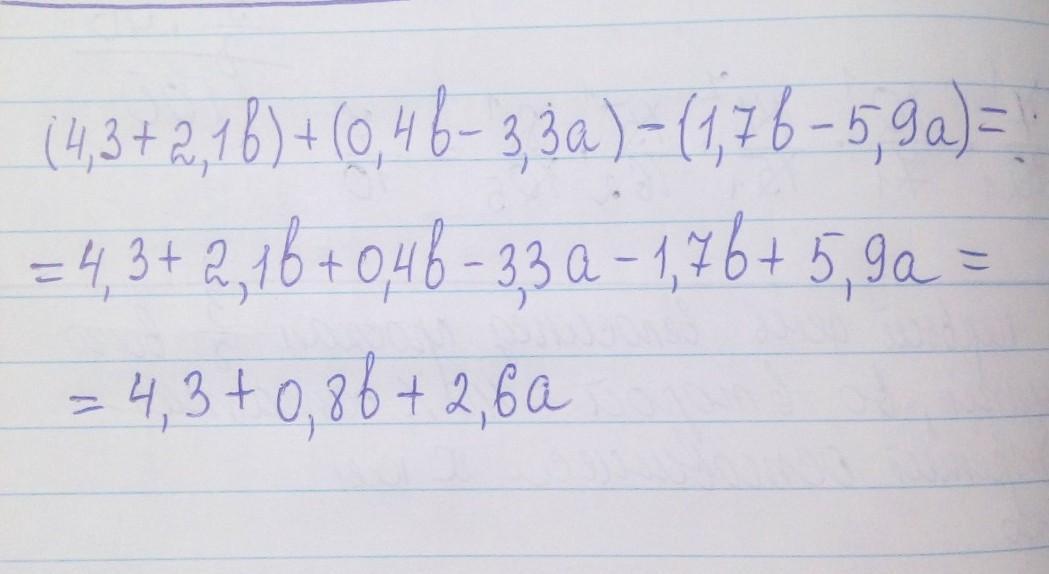 (4,3+2,1b)+(0,4b-3,3a)-(1,7b-5,9a)=
=4,3+2,1b+0,4b-3,3a-1,7b+5,9a=
=4,3+0,8b+2,6a